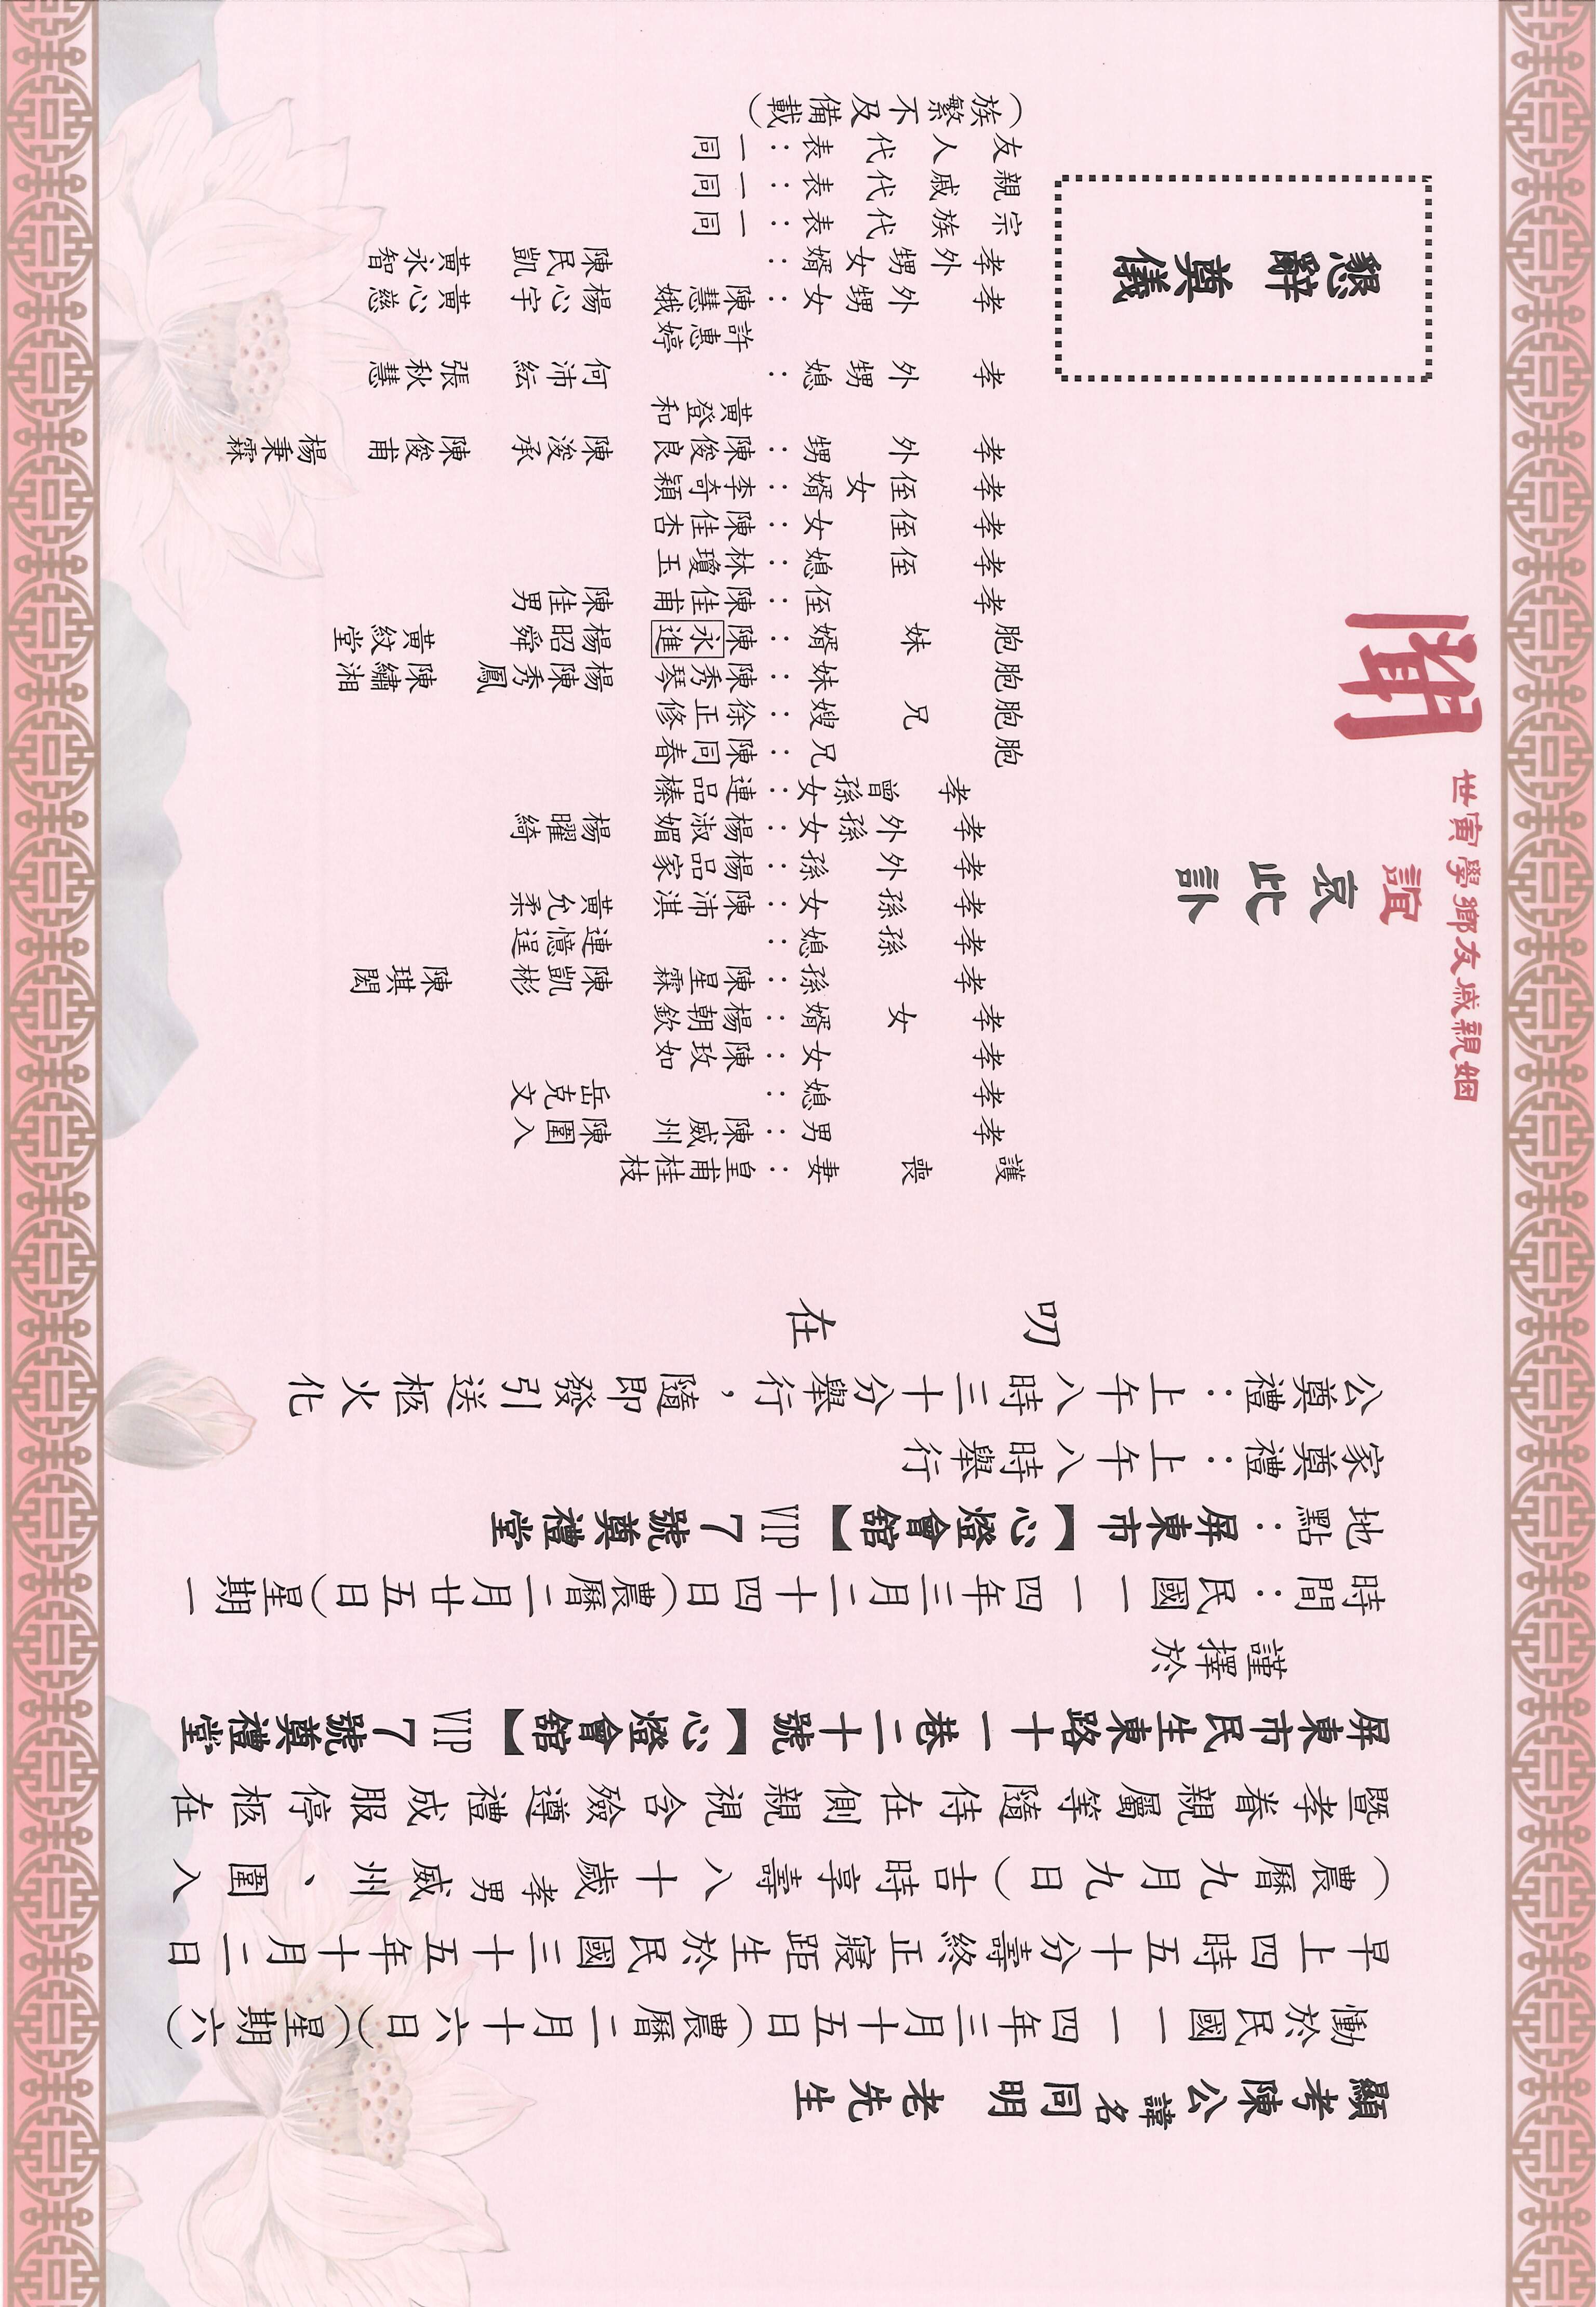 顯考陳公諱名同明老先生
慟於民國一一四年三月十五日(農曆二月十六日)(星期六)
早上四時五十分壽終正寢距生於民國三十五年十月二日
(農曆九月九日)吉時享壽八十歲孝男威州、圍入
暨孝眷親屬等隨侍在側親視含殮遵禮成服停柩在
屏東市民生東路十一巷二十號【心燈會館】VIP 7 號奠禮堂
謹擇於
時間：民國一一四年三月二十四日(農曆二月廿五日)星期一
地點：屏東市【心燈會館】VIP 7 號奠禮堂
家奠禮：上午八時舉行
公奠禮：上午八時三十分舉行，隨即發引送柩火化
叨 在
姻親戚友鄉學寅世
誼
哀此訃
聞
護喪妻：皇甫桂枝
孝男：陳威州 陳圍入
孝媳： 岳克文
孝女：陳玫如
孝女婿：楊朝欽
孝孫：陳星霖 陳凱彬 陳琪閎
孝孫媳： 連憶逞
孝孫女：陳沛淇 黃允柔
孝外孫：楊品家
孝外孫女：楊淑媚 楊曜綺
孝曾孫女：連品榛
胞兄：陳同春
胞兄嫂：徐正修
胞妹：陳秀琴 楊陳秀鳳 陳繡湘
胞妹婿：陳永進 楊昭舜 黃紋堂
孝侄：陳佳甫 陳佳男
孝侄媳：林瓊玉
孝侄女：陳佳杏
孝侄女婿：李奇穎
孝外甥：陳俊良 陳浚承 陳俊甫 楊秉霖
黃登和
孝外甥媳： 何沛紜 張秋慧
許惠婷
孝外甥女：陳慧娥 楊心宇 黃心慈
孝外甥女婿： 陳民凱 黃永智
宗族代表：一同
親戚代表：一同
友人代表：一同
(族繁不及備載)
懇辭奠儀